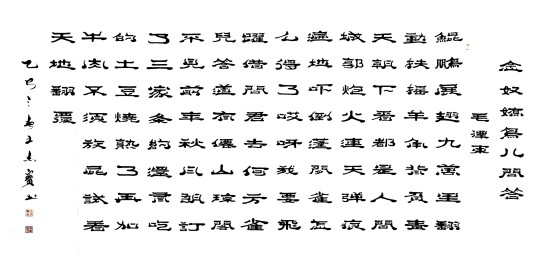 念奴嬌鳥儿問答
毛澤東
鯤鵬展翅九萬里翻
動扶搖羊角背負青
天朝下看都是人間
城郭炮火連天彈痕
遍地吓倒蓬間雀怎
么得了哎呀我要飛
躍借問君去何方雀
兒答道有僊山瓊閣
不見前年秋月朗訂
了三家条約還有吃
的土豆燒熟了再加
牛肉不須放屁試看
天地翻覆
乙巳之春王志